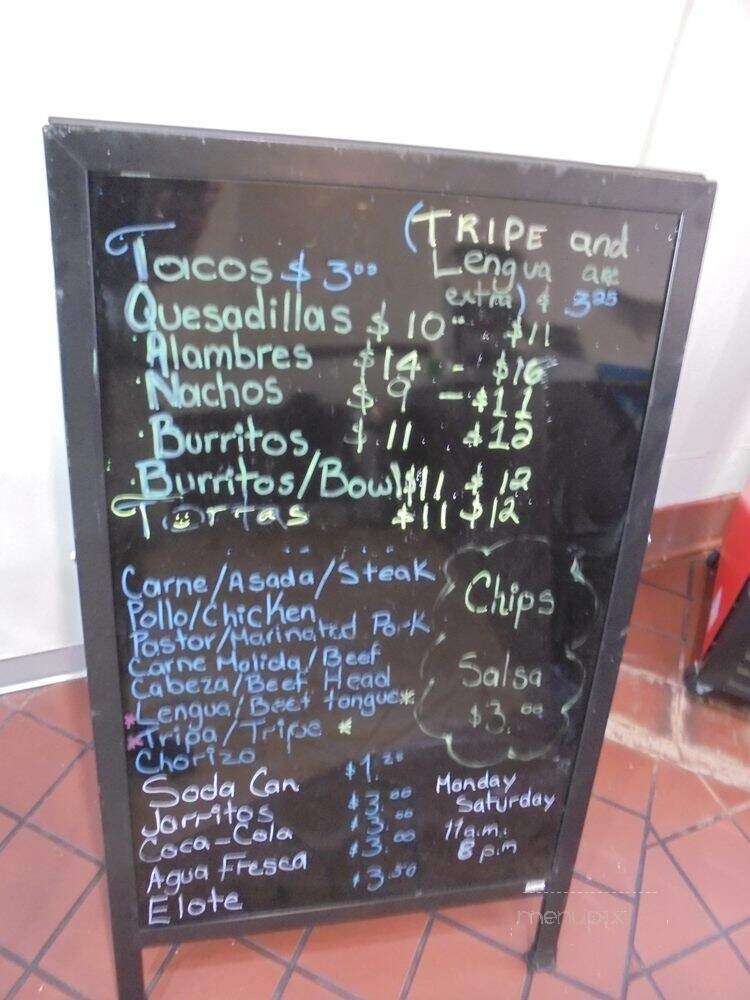 (TRIPE and
Tacos $ 3.00 Lengua are
extra) $ 3.25
Quesadillas $ 10 - $11
Alambres $14 - $16
Nachos $ 9 - $11
Burritos $ 11 $12
Burritos/Bowl $11 $ 12
Tortas $11 $12
Carne/Asada/Steak
Pollo/Chicken
Pastor/Marinated Pork
Carne Molida/Beef
Cabeza/Beef Head
*Lengua/Beef tongue*
*Tripa/Tripe *
Chorizo
Chips
Salsa
$3.00
Soda Can $1.
Jarritos $3.00
Coca-Cola $3.00
Agua Fresca $3.00
Elote $3.50
Monday
Saturday
11 a.m.
8 p.m
menupix